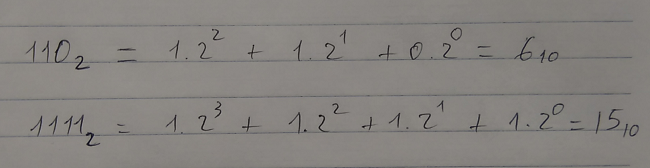 110₂ = 1.2² + 1.2¹ + 0.2⁰ = 6₁₀
1111₂ = 1.2³ + 1.2² + 1.2¹ + 1.2⁰ = 15₁₀